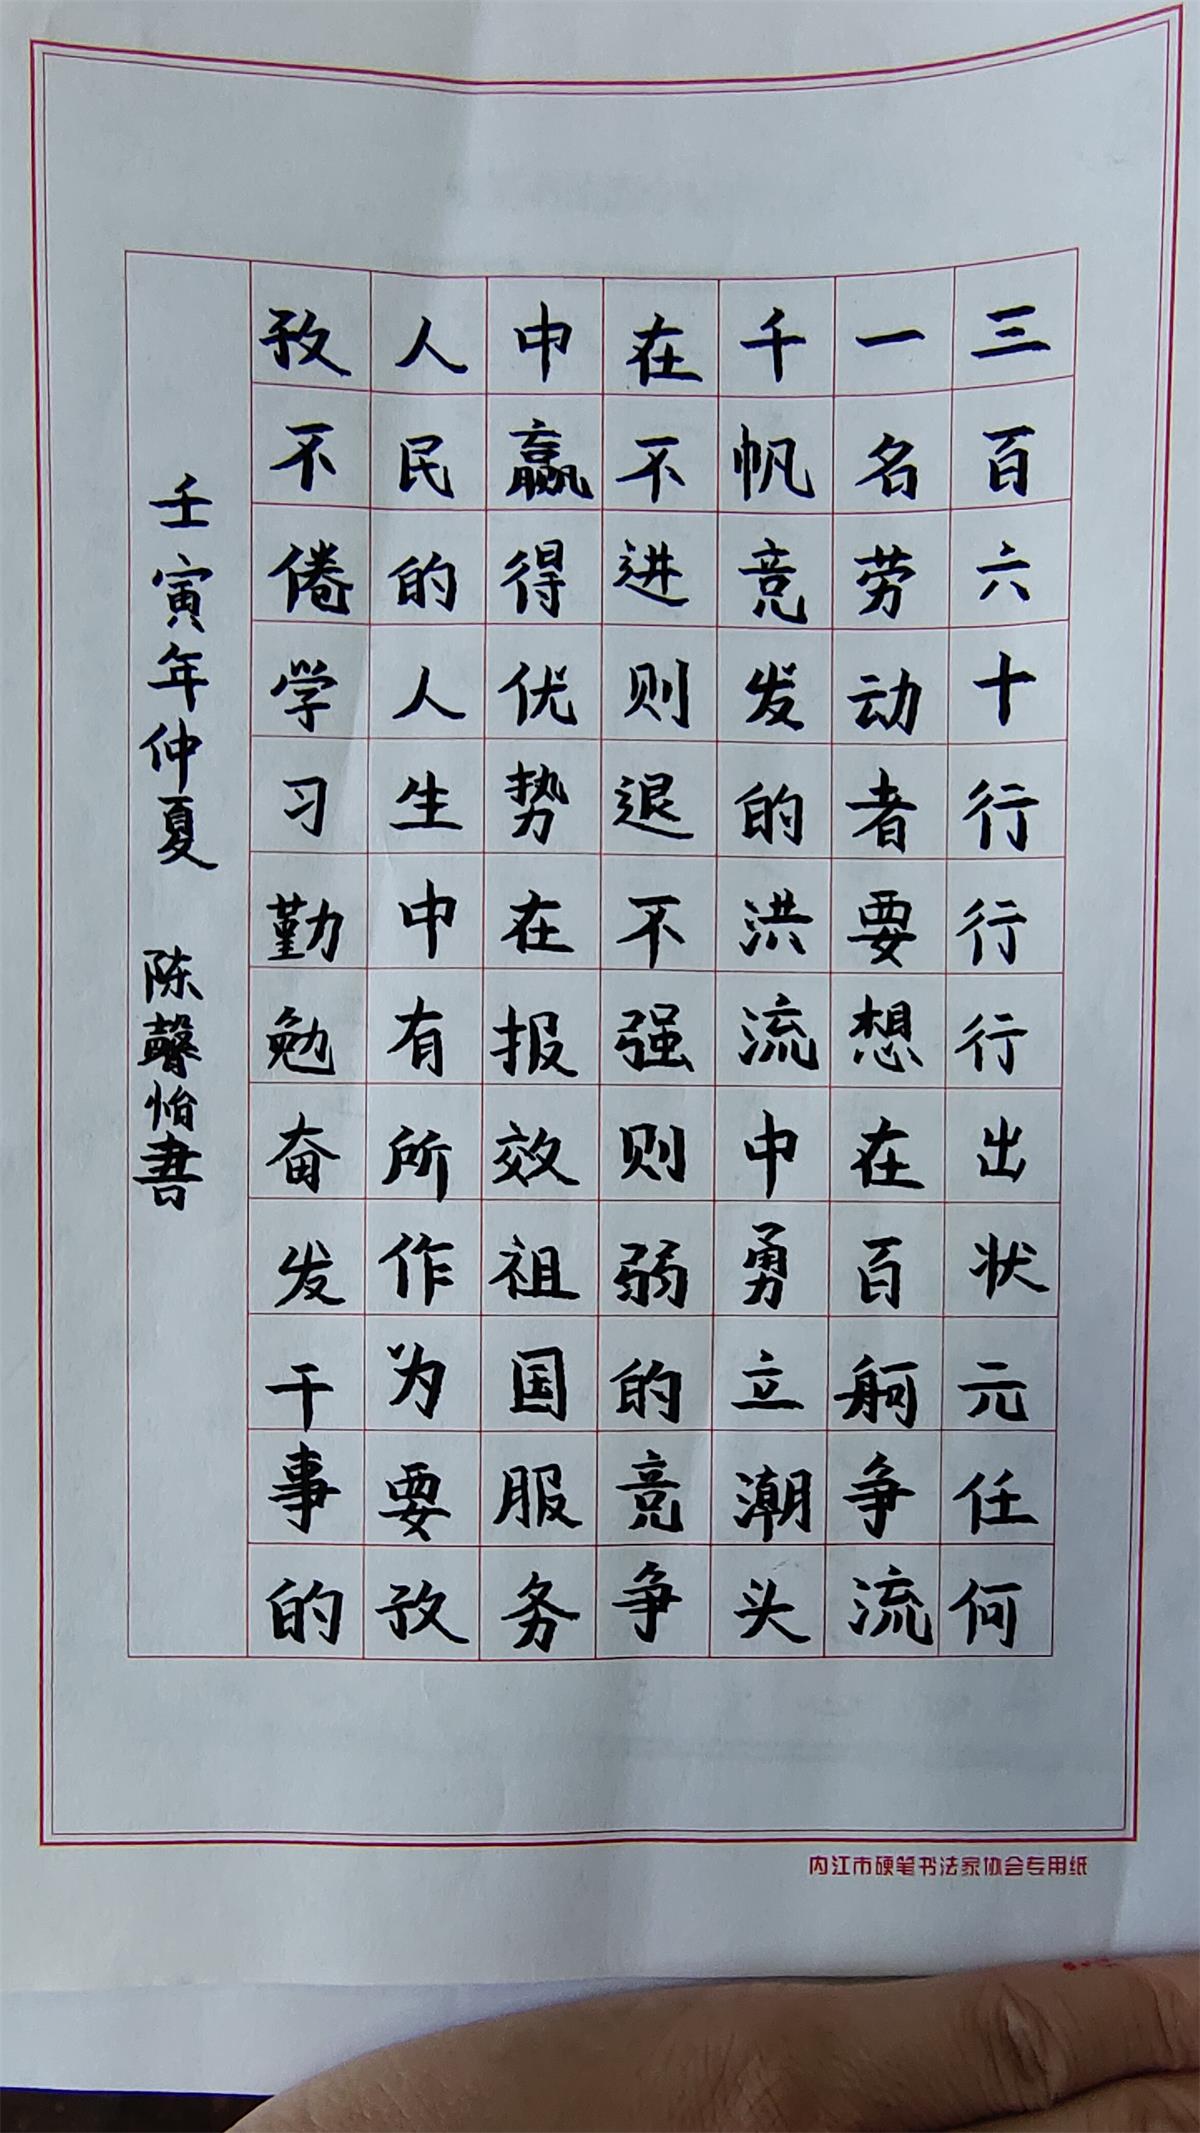 三百六十行行行出状元任何
一名劳动者要想在百舸争流
千帆竞发的洪流中勇立潮头
在不进则退不强则弱的竞争
中赢得优势在报效祖国服务
人民的人生中有所作为要孜
孜不倦学习勤勉奋发干事的
壬寅年仲夏 陈馨怡书
内江市硬笔书法家协会专用纸